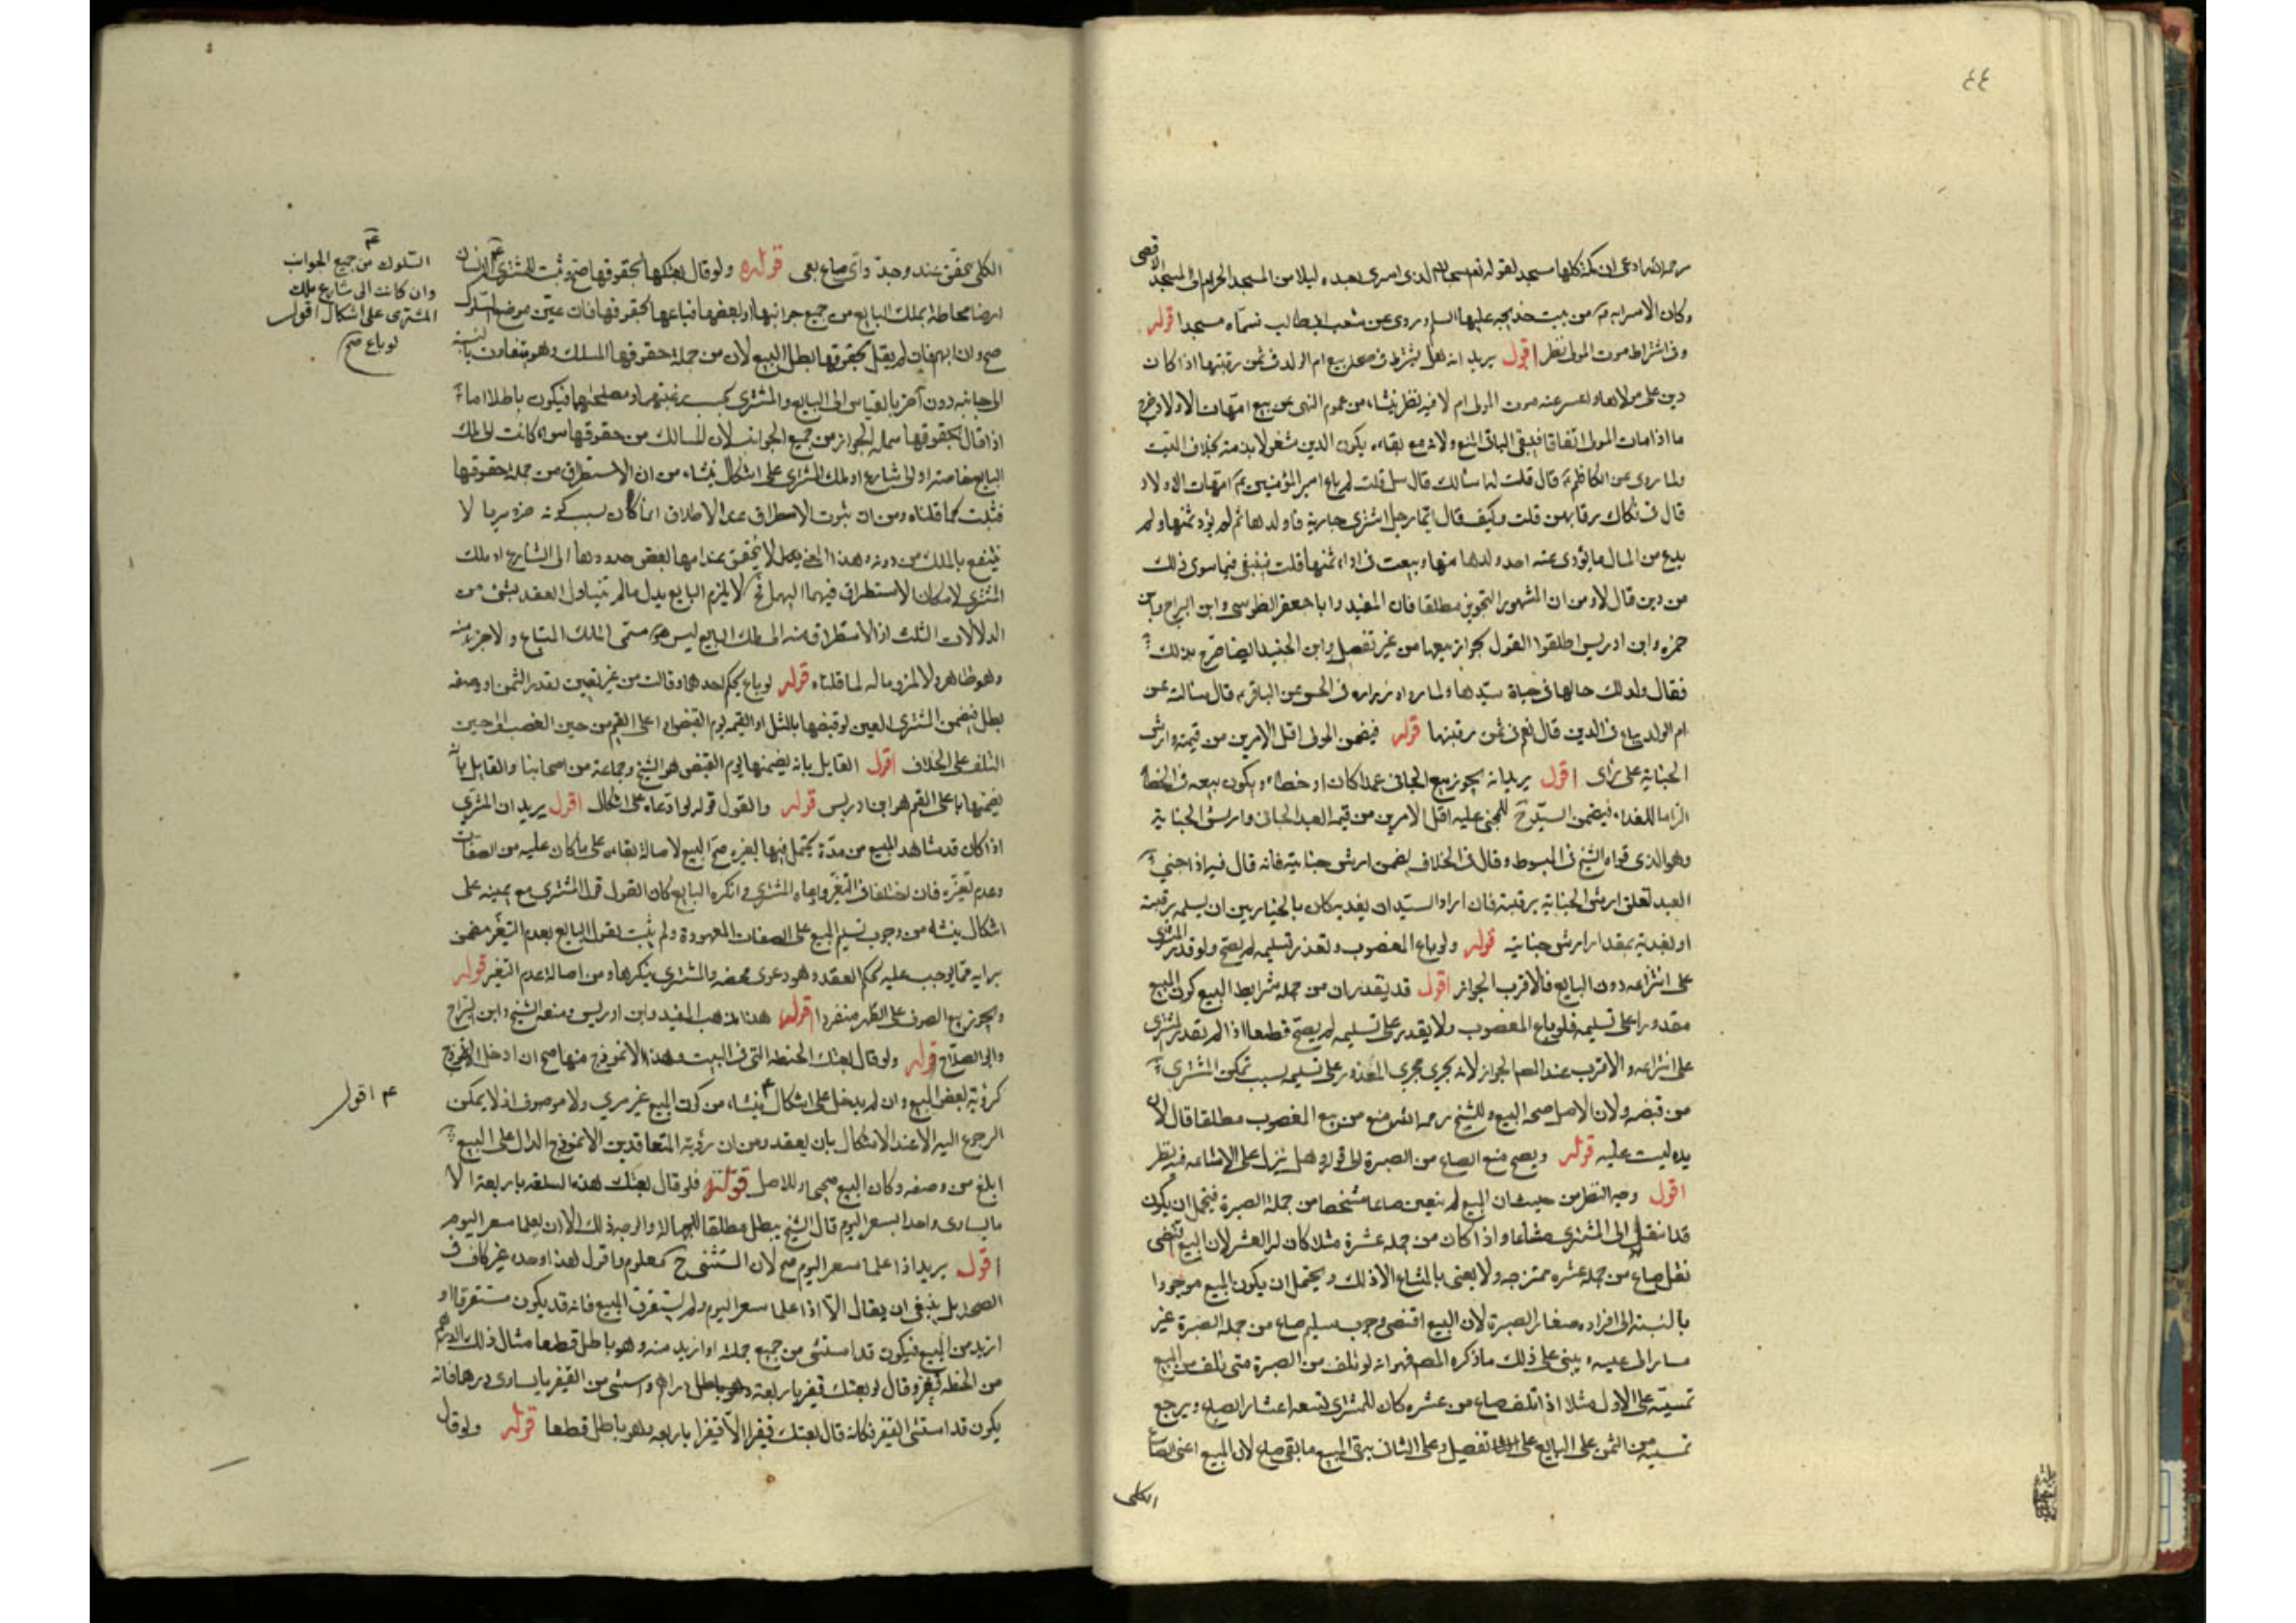 ٤٤
رحمه الله ادعى ان مكة كلها مسجد لقوله تعالى سبحان الذي اسرى بعبده ليلا من المسجد الحرام الى المسجد الاقصى
وكان الاسراء من بيت خديجه عليها السلم وروى عن شعب ابيطالب فسماه مسجدا قوله
وفي اشتراط موت المولى نظر اقول يريد انه هل يشترط في صحة بيع ام الولد في ثمن رقبتها اذا كان
دين على مولاها واعسر عنه موت المولى ام لا فيه نظر ينشاء من عموم النهي عن بيع امهات الاولاد خرج
ما اذا مات المولى اتفاقا فيبقى الباقي على المنع ولان مع بقاءه يكون الدين مشغولا بذمته بخلاف الميت
ولما روى عن الكاظم قال قلت له اسالك قال سل قلت لم باع امير المؤمنين امهات الاولاد
قال في فكاك رقابهن قلت وكيف قال ايما رجل اشترى جارية فاولدها ثم لم يؤد ثمنها ولم
يدع من المال ما يؤدى عنه اخذ ولدها منها وبيعت في اداء ثمنها قلت فيبغن فيما سوى ذلك
من دين قال لا ومن ان المشهور التجويز مطلقا فان المفيد وابا جعفر الطوسي وابن البراج وابن
حمزه وابن ادريس اطلقوا القول بجواز بيعها من غير تفصيل وابن الجنيد ايضا صرح بذلك
فقال ولد لك حالها في حياة سيدها ولما رواه زراره في الحسن عن الباقر قال سالته عن
ام الولد تباع في الدين قال نعم في ثمن رقبتها قوله فيضمن المولى اقل الامرين من قيمته وارش
الجناية على رأى اقول يريد انه يجوز بيع الجاني عمدا كان او خطاء ويكون بيعه في الخطا
الزاما للفداء فيضمن السيد ح للمجني عليه اقل الامرين من قيمة العبد الجاني وارش الجناية
وهو الذي قواه الشيخ في المبسوط وقال في الخلاف يضمن ارش جنايته فانه قال فيه اذا جنى
العبد تعلق ارش الجناية برقبته فان اراد السيد ان يفديه كان بالخيار بين ان يسلمه برقبته
او يفديه بمقدار ارش جنايته قوله ولو باع المغصوب وتعذر تسليمه لم يصح ولو قدر المشتري
على انتزاعه دون البايع فالاقرب الجواز اقول قد تقدم ان من جملة شرايط البيع كون المبيع
مقدورا على تسليمه فلو باع المغصوب ولا يقدر على تسليمه لم يصح قطعا اذا لم يقدر المشتري
على انتزاعه والاقرب عند المصم الجواز لانه يجري مجرى المقدور على تسليمه بسبب تمكن المشتري
من قبضه ولان الاصل صحة البيع وللشيخ رحمه الله منع من بيع المغصوب مطلقا قال لان
يده ليست عليه قوله ويصح بيع الصاع من الصبرة الى قوله وهل ينزل على الاشاعه فيه نظر
اقول وجه النظر من حيث ان المبيع لم يتعين صاعا مشخصا من جملة الصبرة فيحتمل ان يكون
قد انتقل الى المشتري مشاعا واذا كان من جملة عشرة مثلا كان له العشر لان البيع اقتضى
نقل صاع من جملة عشره ممتزجه ولا يعنى بالمشاع الا ذلك ويحتمل ان يكون المبيع موجودا
بالنسبه الى افراده صغار الصبرة لان البيع اقتضى وجوب تسليم صاع من جملة الصبرة غير
مشار اليه عينه ويبنى على ذلك ما ذكره المصم فهو انه لو تلف من الصبرة شي تلف من المبيع
قسيته على الاول مثلا اذا تلف صاع من عشره كان للمشتري تسعة اعشار الصاع ويرجع
قسيته من الثمن على البايع على التفصيل وعلى الثاني يبقى المبيع ما بقي صاع لان المبيع اعنى الصاع
الكلي
الكلي تحقق عند وجد واي صاع بقى قوله ولو قال بعتكها بحقوقها صح وثبت للمشتري
ارضا محاطة بملك البايع من جميع جوانبها او بعضها فباعها بحقوقها فان عين موضع السلوك
صح وان ابهم فان لم يقل بحقوقها بطل البيع لان من جملة حقوقها المسلك وهو متفاوت بالنسبة
الى جانب دون اخر بالقياس الى البايع والمشتري بحسب رغبتهما ومصلحتهما فيكون باطلا اما
اذا قال بحقوقها سلك الجواز من جميع الجوانب لان المسالك من حقوقها سواء كانت الى ملك
البايع خاصة او الى شارع او ملك المشتري على اشكال ينشاء من ان الاستطراق من جملة حقوقها
فثبت كما قلناه ومن ان ثبوت الاستطراق على الاطلاق انما كان بسبب كونه ضروريا لا
ينتفع بالملك من دونه وهذا المعنى لا يتحقق عند انتهاء بعض حدودها الى الشارع او ملك
المشتري لامكان الاستطراق فيهما اليهما فح لا يلزم البايع بذل ما لم يتناول العقد بشئ من
الدلالات الثلث اذ الاستطراق منه الى ملك البايع ليس هو مسمى الملك المبتاع ولا جزءه منه
وهو ظاهر ولا لازما له لما قلناه قوله لو باع بحكم احدهما او ثالث من غير تعين لقدر الثمن او وصفه
بطل فيضمن المشتري العين لو قبضها بالمثل او القيمه يوم القبض او اعلى القيم من حين الغصب الى حين
التلف على الخلاف اقول القايل بانه يضمنها يوم القبض هو الشيخ وجماعة من اصحابنا والقايل بان
يضمنها باعلى القيم هو ابن ادريس قوله والقول قوله لو ادعاه على اشكال اقول يريد ان المشتري
اذا كان قد شاهد المبيع من مدة يحتمل فيها تغيره صح البيع لاصالة بقاءه على ما كان عليه من الصفات
وعدم تغيره فان اختلفا في التغير وادعاه المشتري وانكره البايع كان القول قول المشتري مع يمينه على
اشكال ينشاء من وجوب تسليم المبيع على الصفات المعهودة ولم يثبت بقول البايع بعدم التغير فمضمن
برايه مما يوجب عليه بحكم العقد وهو دعوى محضه والمشتري ينكرها ومن اصالة عدم التغير قوله
ويجوز بيع الصوف على الظهر منفردا اقول هذا مذهب المفيد وابن ادريس ومنعه الشيخ وابن البراج
وابو الصلاح قوله ولو قال بعتك الحنطه التي في البيت وهذا الانموذج منها صح ان ادخل الانموذج
كرؤية بعض المبيع وان لم يدخل على اشكال ينشاء من كون المبيع غير مرئي ولا موصوف اذ لا يمكن
الرجوع اليه الا عند الاشكال بان يعقد ومن ان رؤية المتعاقدين الانموذج الدال على المبيع
ابلغ من وصفه وكان البيع صحيحا وللاصل قوله فلو قال بعتك هذه السلعه باربعة الا
ما يساوى واحدا بسعر اليوم قال الشيخ يبطل مطلقا للجهالة والوجه ذلك الا ان يعلما سعر اليوم
اقول يريد اذا علما سعر اليوم صح لان المستثنى ح كمعلوم واقول هذا وحده غير كاف في
الصحة بل ينبغى ان يقال الا اذا علما سعر اليوم ولم يستغرق المبيع فانه قد يكون مستغرقا او
ازيد من المبيع فيكون قد استثنى من جميع جملته او ازيد منه وهو باطل قطعا مثال ذلك بالدرهم
من الحنطه قفيز وقال لو بعتك قفيزا باربعة دراهم واستثنى من القفيز ما يساوى درهما فانه
يكون قد استثنى القفيز فكانه قال بعتك قفيزا الا قفيزا باربعه وهو باطل قطعا قوله ولو قال
السلوك من جميع الجوانب
وان كانت الى شارع او ملك
المشترى على اشكال اقول
لو باع صح
اقول